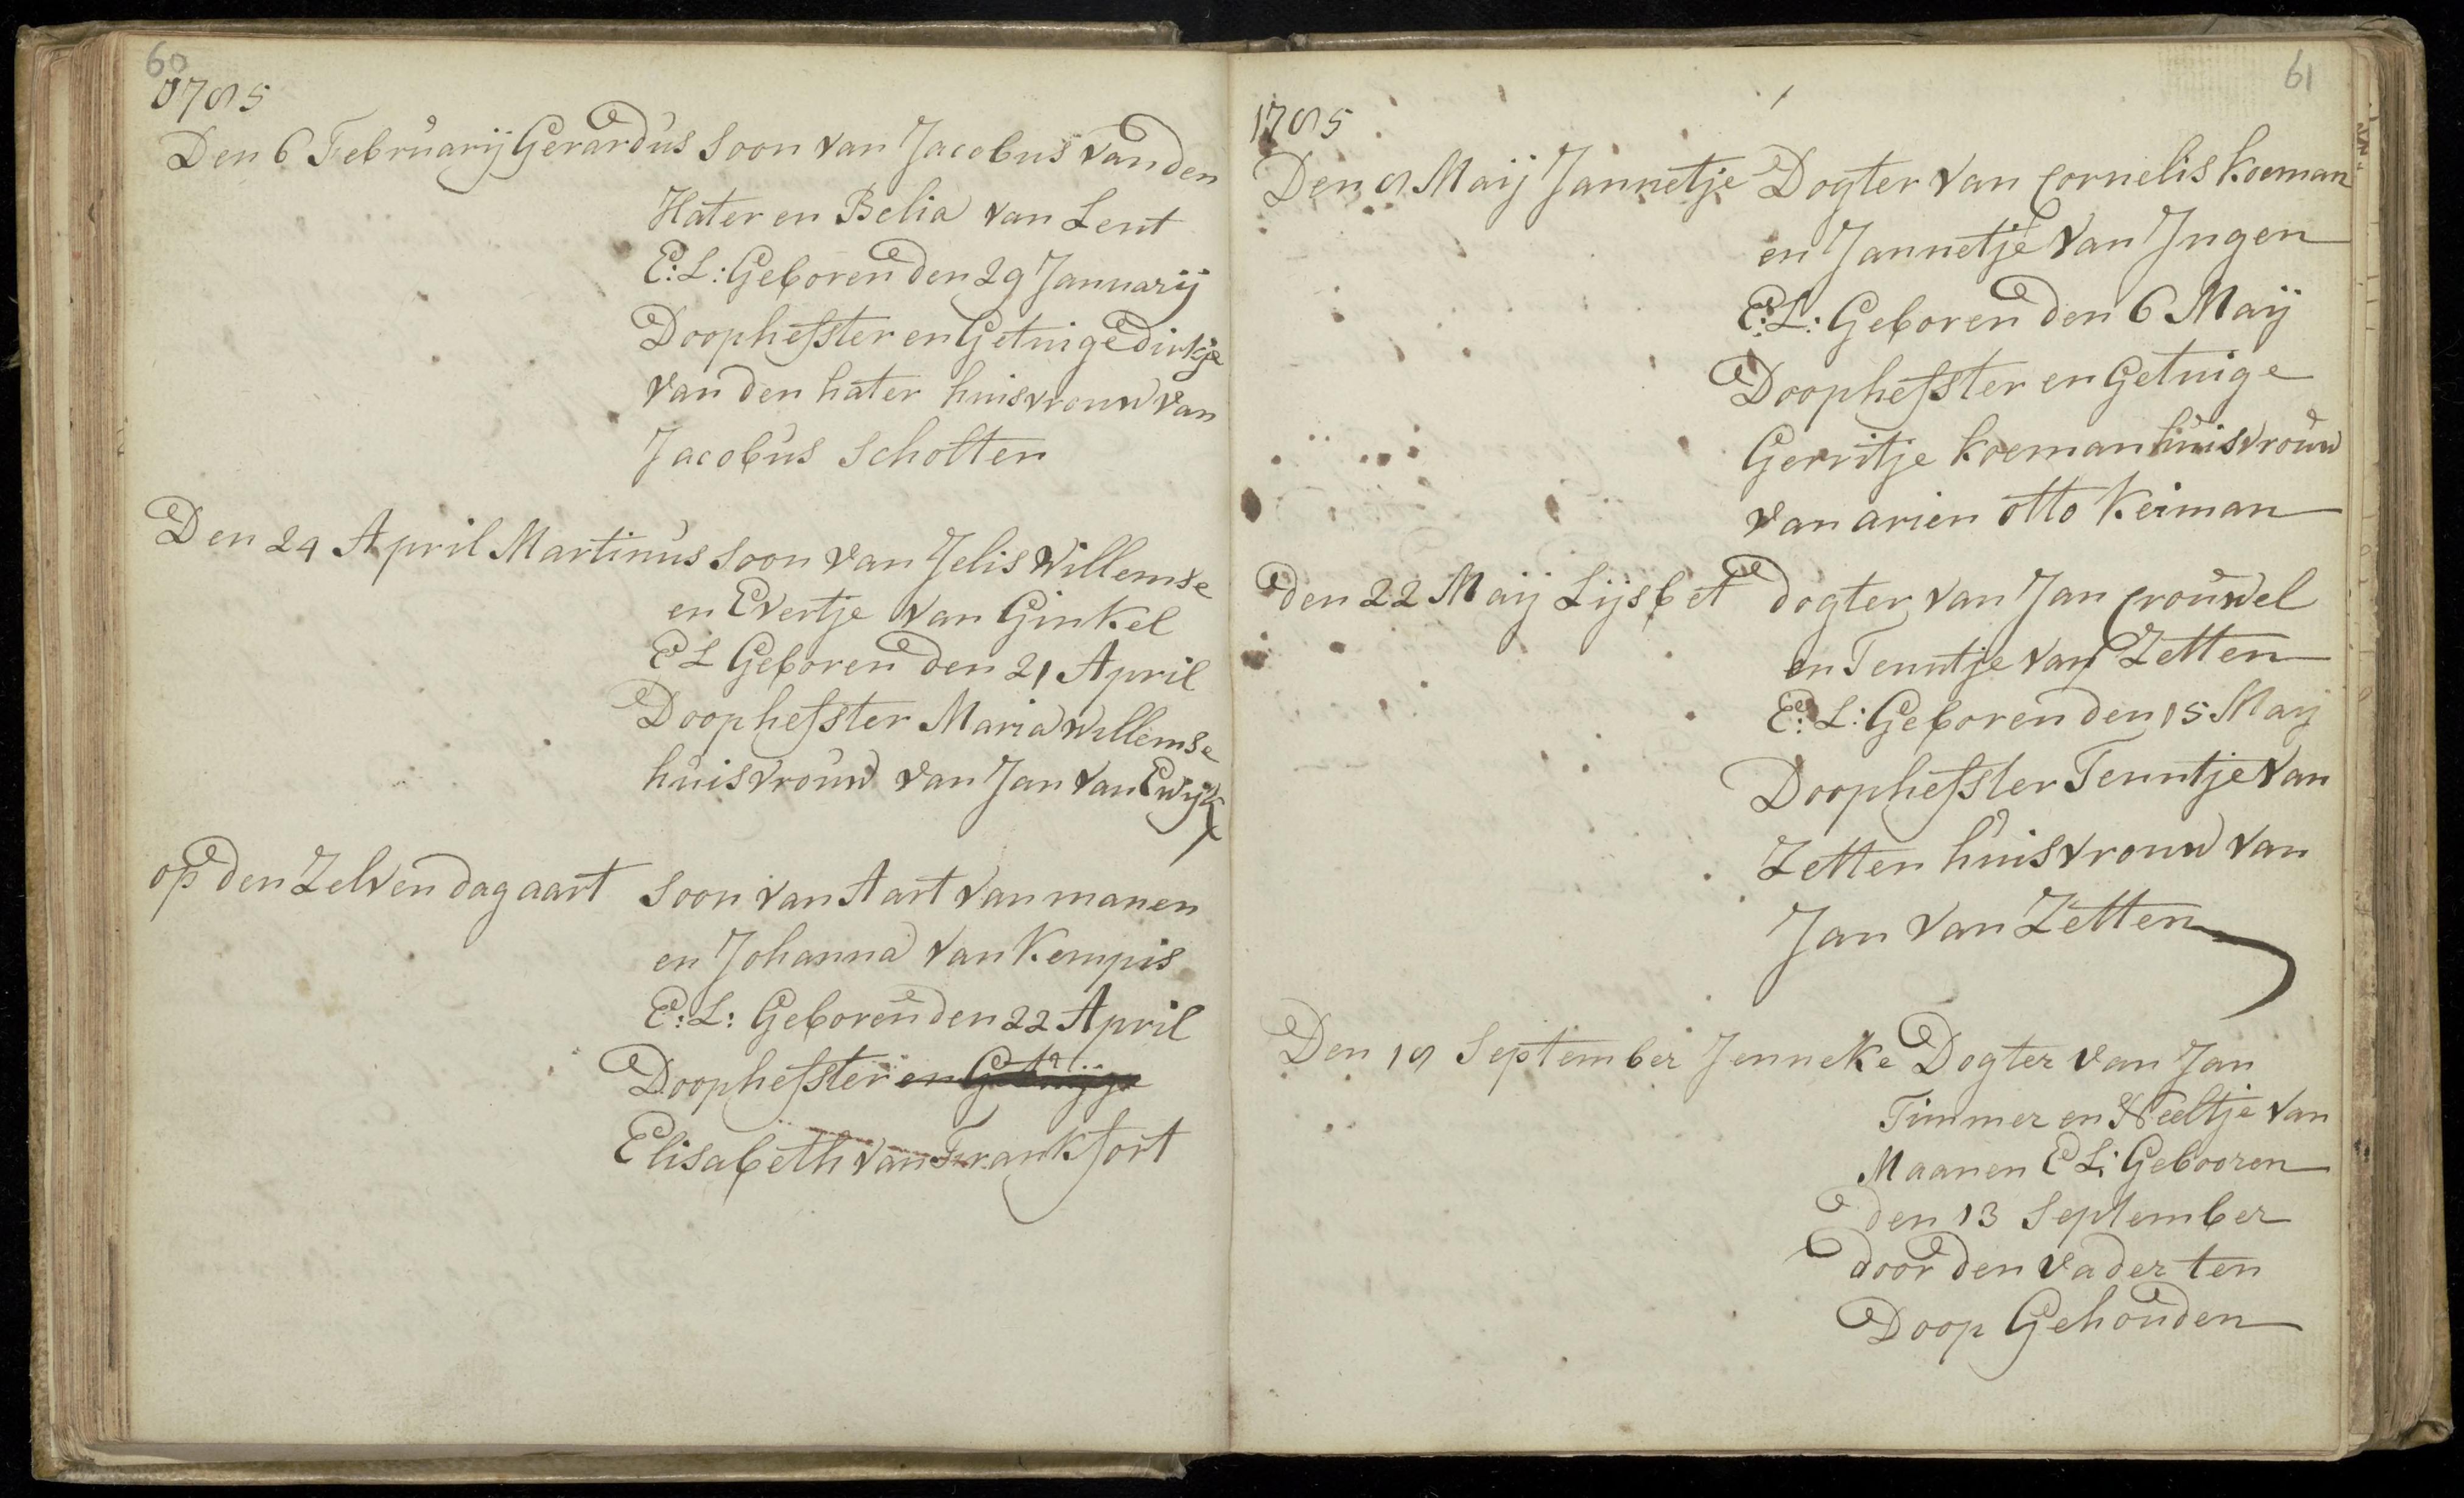 60
1785
Den 6 Februarij Gerardus Soon van Jacobus van den
Hater en Belia van Lent
E: L: Geboren den 29 Januarij
Doophefster en Getuige dirkje
van den hater huisvrouw van
Jacobus Scholten
Den 24 April Martinus Soon van Jelis Willemse
en Evertje van Ginkel
E L Geboren den 21 April
Doophefster Maria Willemse
huisvrouw van Jan van Ewijk
op den Zelven dag aart Soon van Aart van manen
en Johanna van Kempis
E: L: Geboren den 22 April
Doophefster en Getuige
Elisabeth van Frankfort
61
1785
Den 8 Maij Jannetje Dogter van Cornelis Koeman
en Jannetje van Ingen
E: L: Geboren den 6 Maij
Doophefster en Getuige
Gerritje Koeman huisvrouw
van arien otto Keiman
den 22 Maij Lijsbet dogter van Jan Crouwel
en Teuntje van Zetten
E: L: Geboren den 15 Maij
Doophefster Teuntje van
Zetten huisvrouw van
Jan van Zetten
Den 18 September Jenneke Dogter van Jan
Timmer en Neeltje van
Maanen E L: Gebooren
den 13 September
door den vader ten
Doop Gehouden